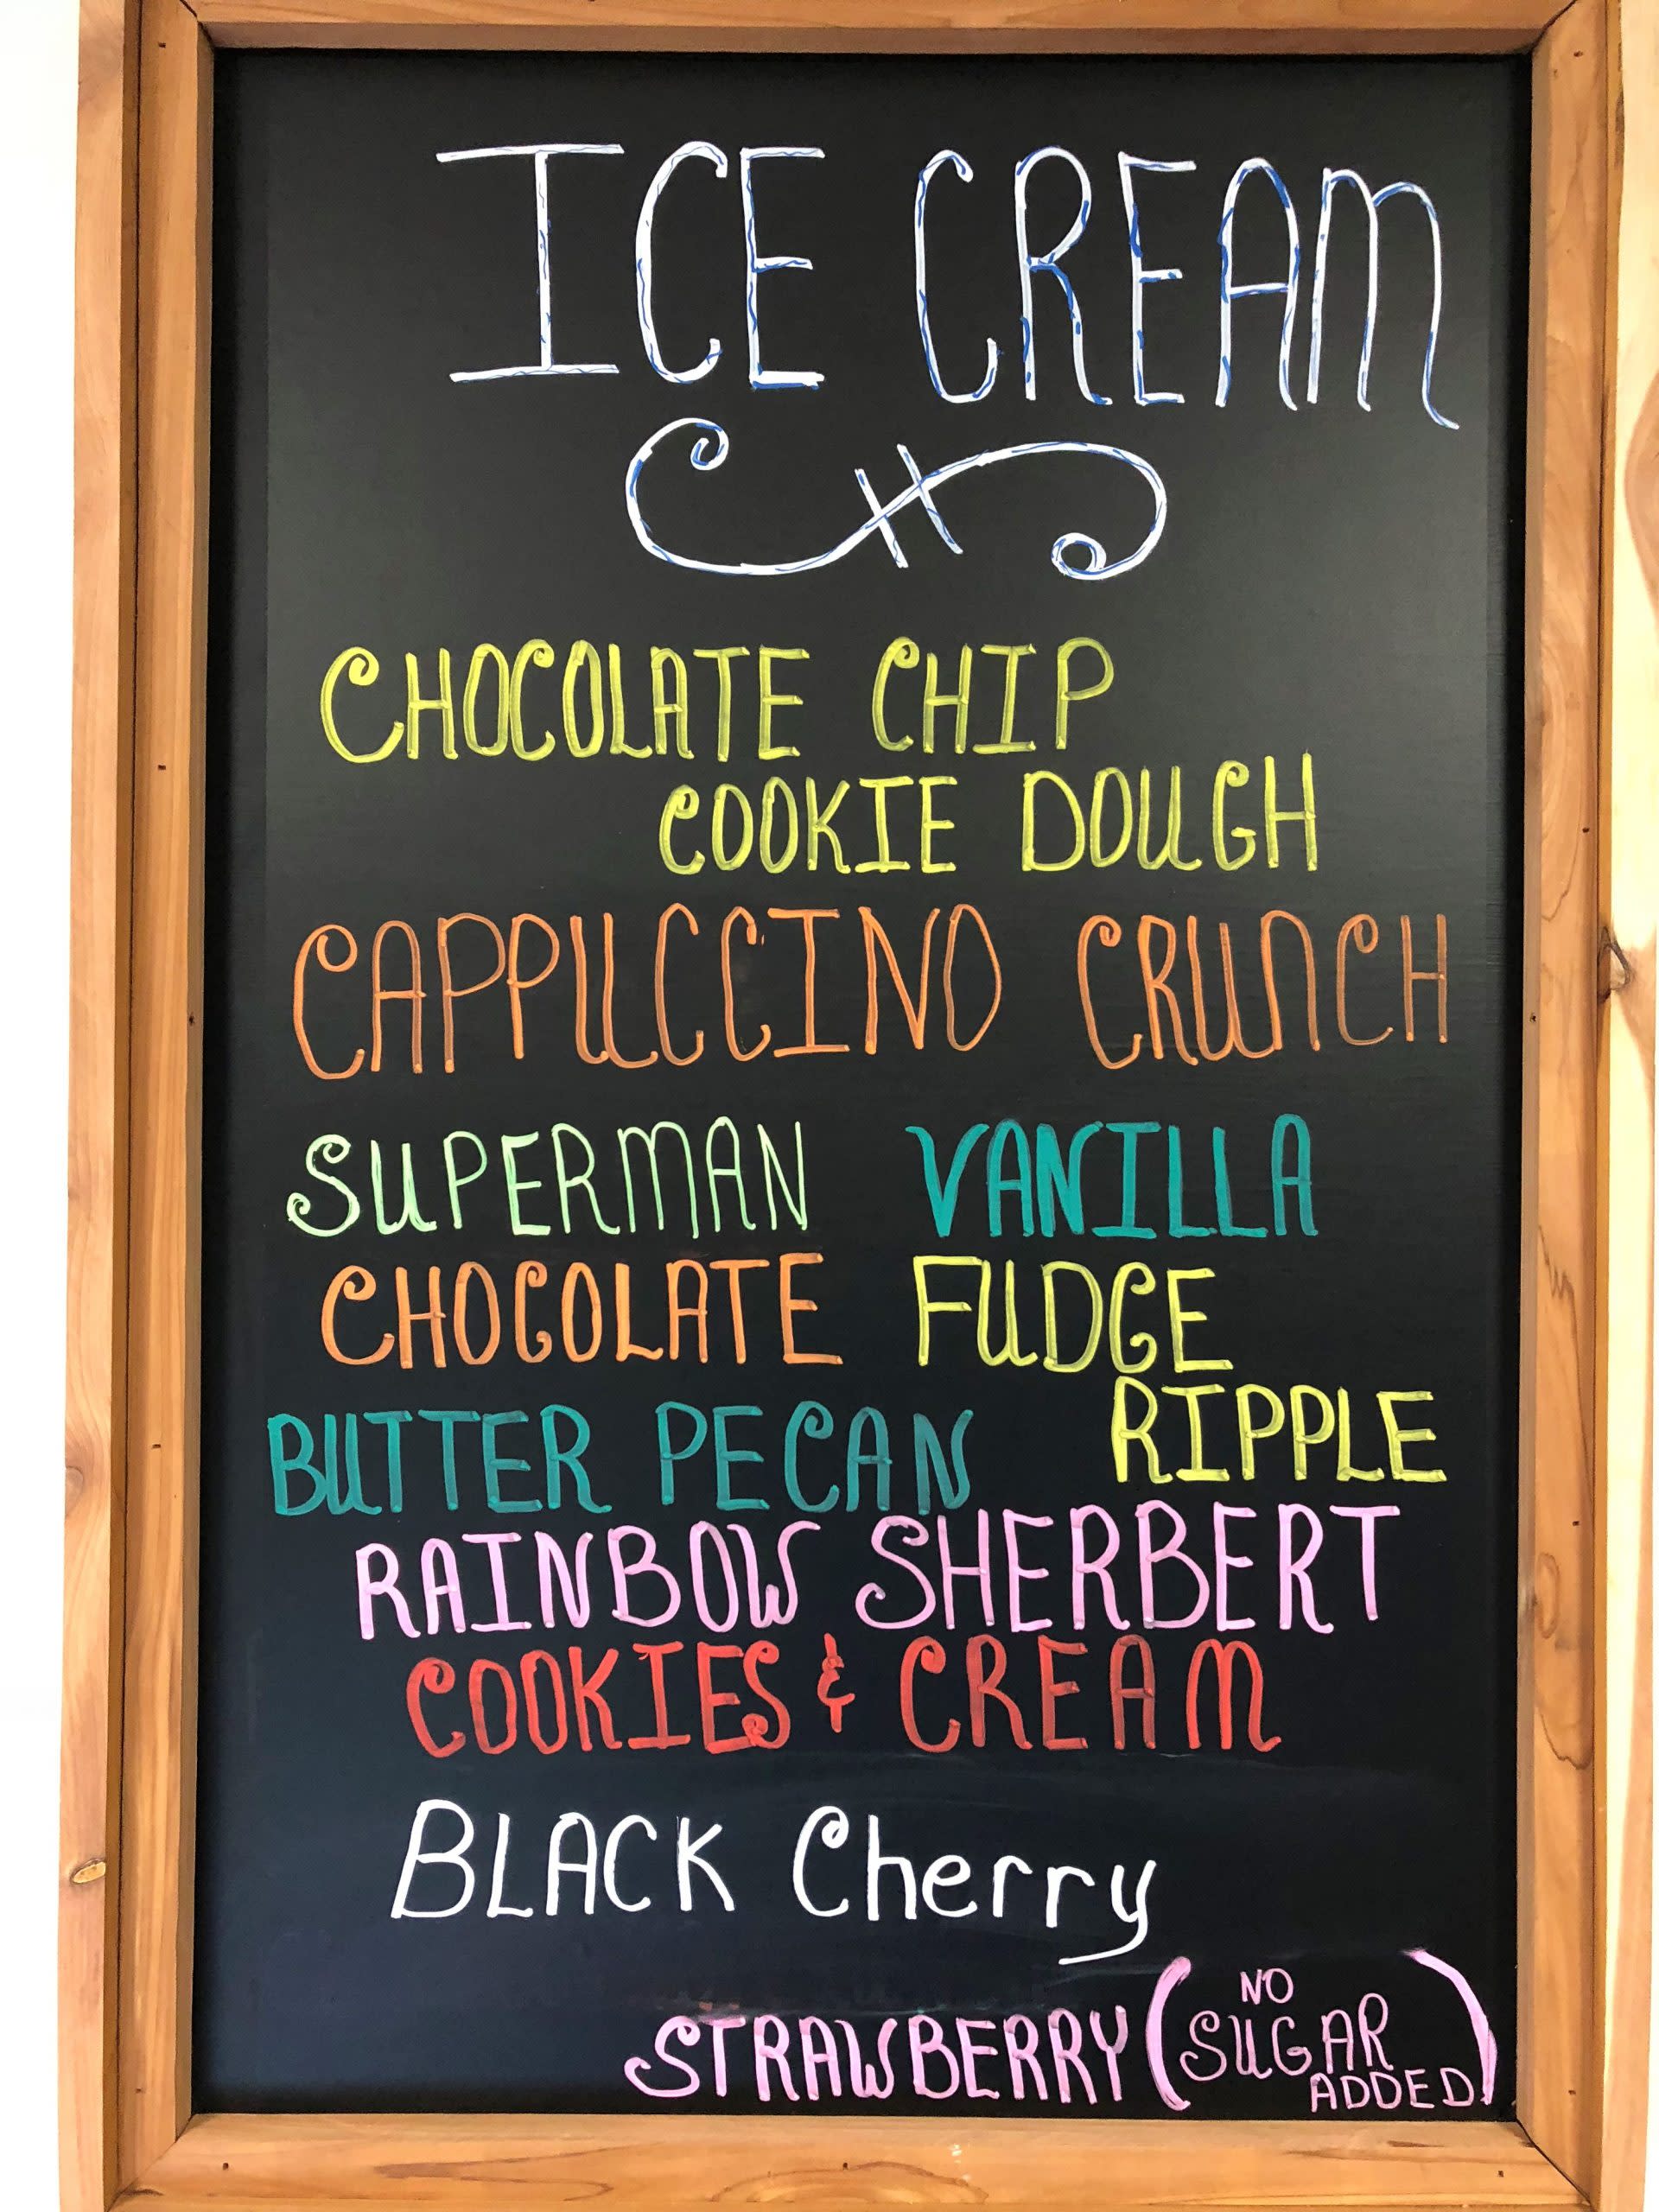 ICE CREAM
CHOCOLATE CHIP
COOKIE DOUGH
CAPPUCCINO CRUNCH
SUPERMAN VANILLA
CHOCOLATE FUDGE
RIPPLE
BUTTER PECAN
RAINBOW SHERBERT
COOKIES & CREAM
BLACK Cherry
STRAWBERRY (NO
SUGAR
ADDED)